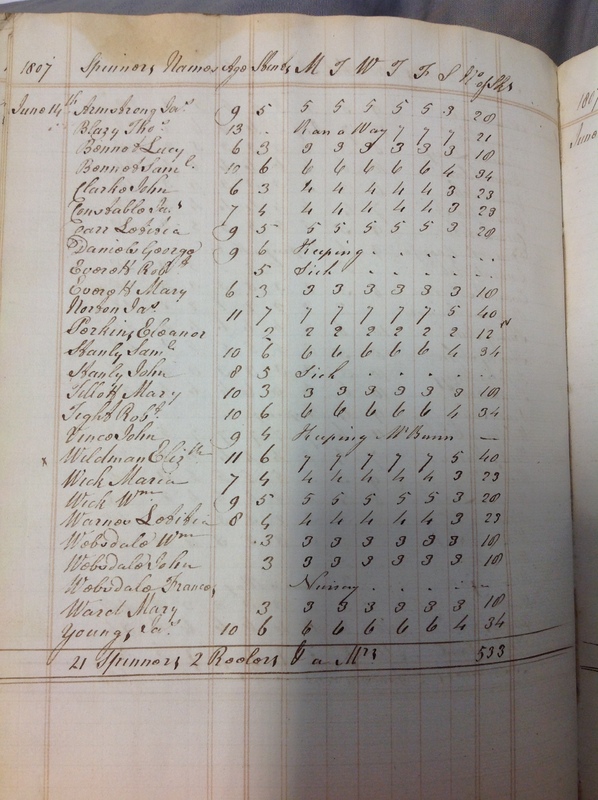 1807 Spinners Names Age Stents M T W T F S No of Sks
June 14th Armstrong Jas 9 5 5 5 5 5 5 3 28
Blazy Thos 13 . Ran a Way 7 7 7 21
Bonnet Lucy 6 3 3 3 3 3 3 3 18
Bonnet Saml 10 6 6 6 6 6 6 4 34
Clarke John 6 3 4 4 4 4 4 3 23
Constable Jas 7 4 4 4 4 4 4 3 23
Carr Letitia 9 5 5 5 5 5 5 3 28
Daniels George 9 6 Keeping . . . . .
Everett Robt 5 Sick . . . . .
Everett Mary 6 3 3 3 3 3 3 3 18
Norton Jas 11 7 7 7 7 7 7 5 40
Perkins Eleanor 2 2 2 2 2 2 2 12
Stanly Saml 10 6 6 6 6 6 6 4 34
Stanly John 8 5 Sick . . . . .
Tillott Mary 10 3 3 3 3 3 3 3 18
Tight Robt 10 6 6 6 6 6 6 4 34
Vince John 9 4 Keeping Mr Bunn —
x Wildman Elizth 11 6 7 7 7 7 7 5 40
Wick Maria 7 4 4 4 4 4 4 3 23
Wick Wm 9 5 5 5 5 5 5 3 28
Warnes Letitia 8 4 4 4 4 4 4 3 23
Websdale Wm .3 3 3 3 3 3 3 18
Websdale John 3 3 3 3 3 3 3 18
Websdale Frances . . . . —
Ward Mary 3 3 3 3 3 3 3 18
Youngs Jas 10 6 6 6 6 6 6 4 34
21 Spinners 2 Reelers & a Mrs 533
1807
June